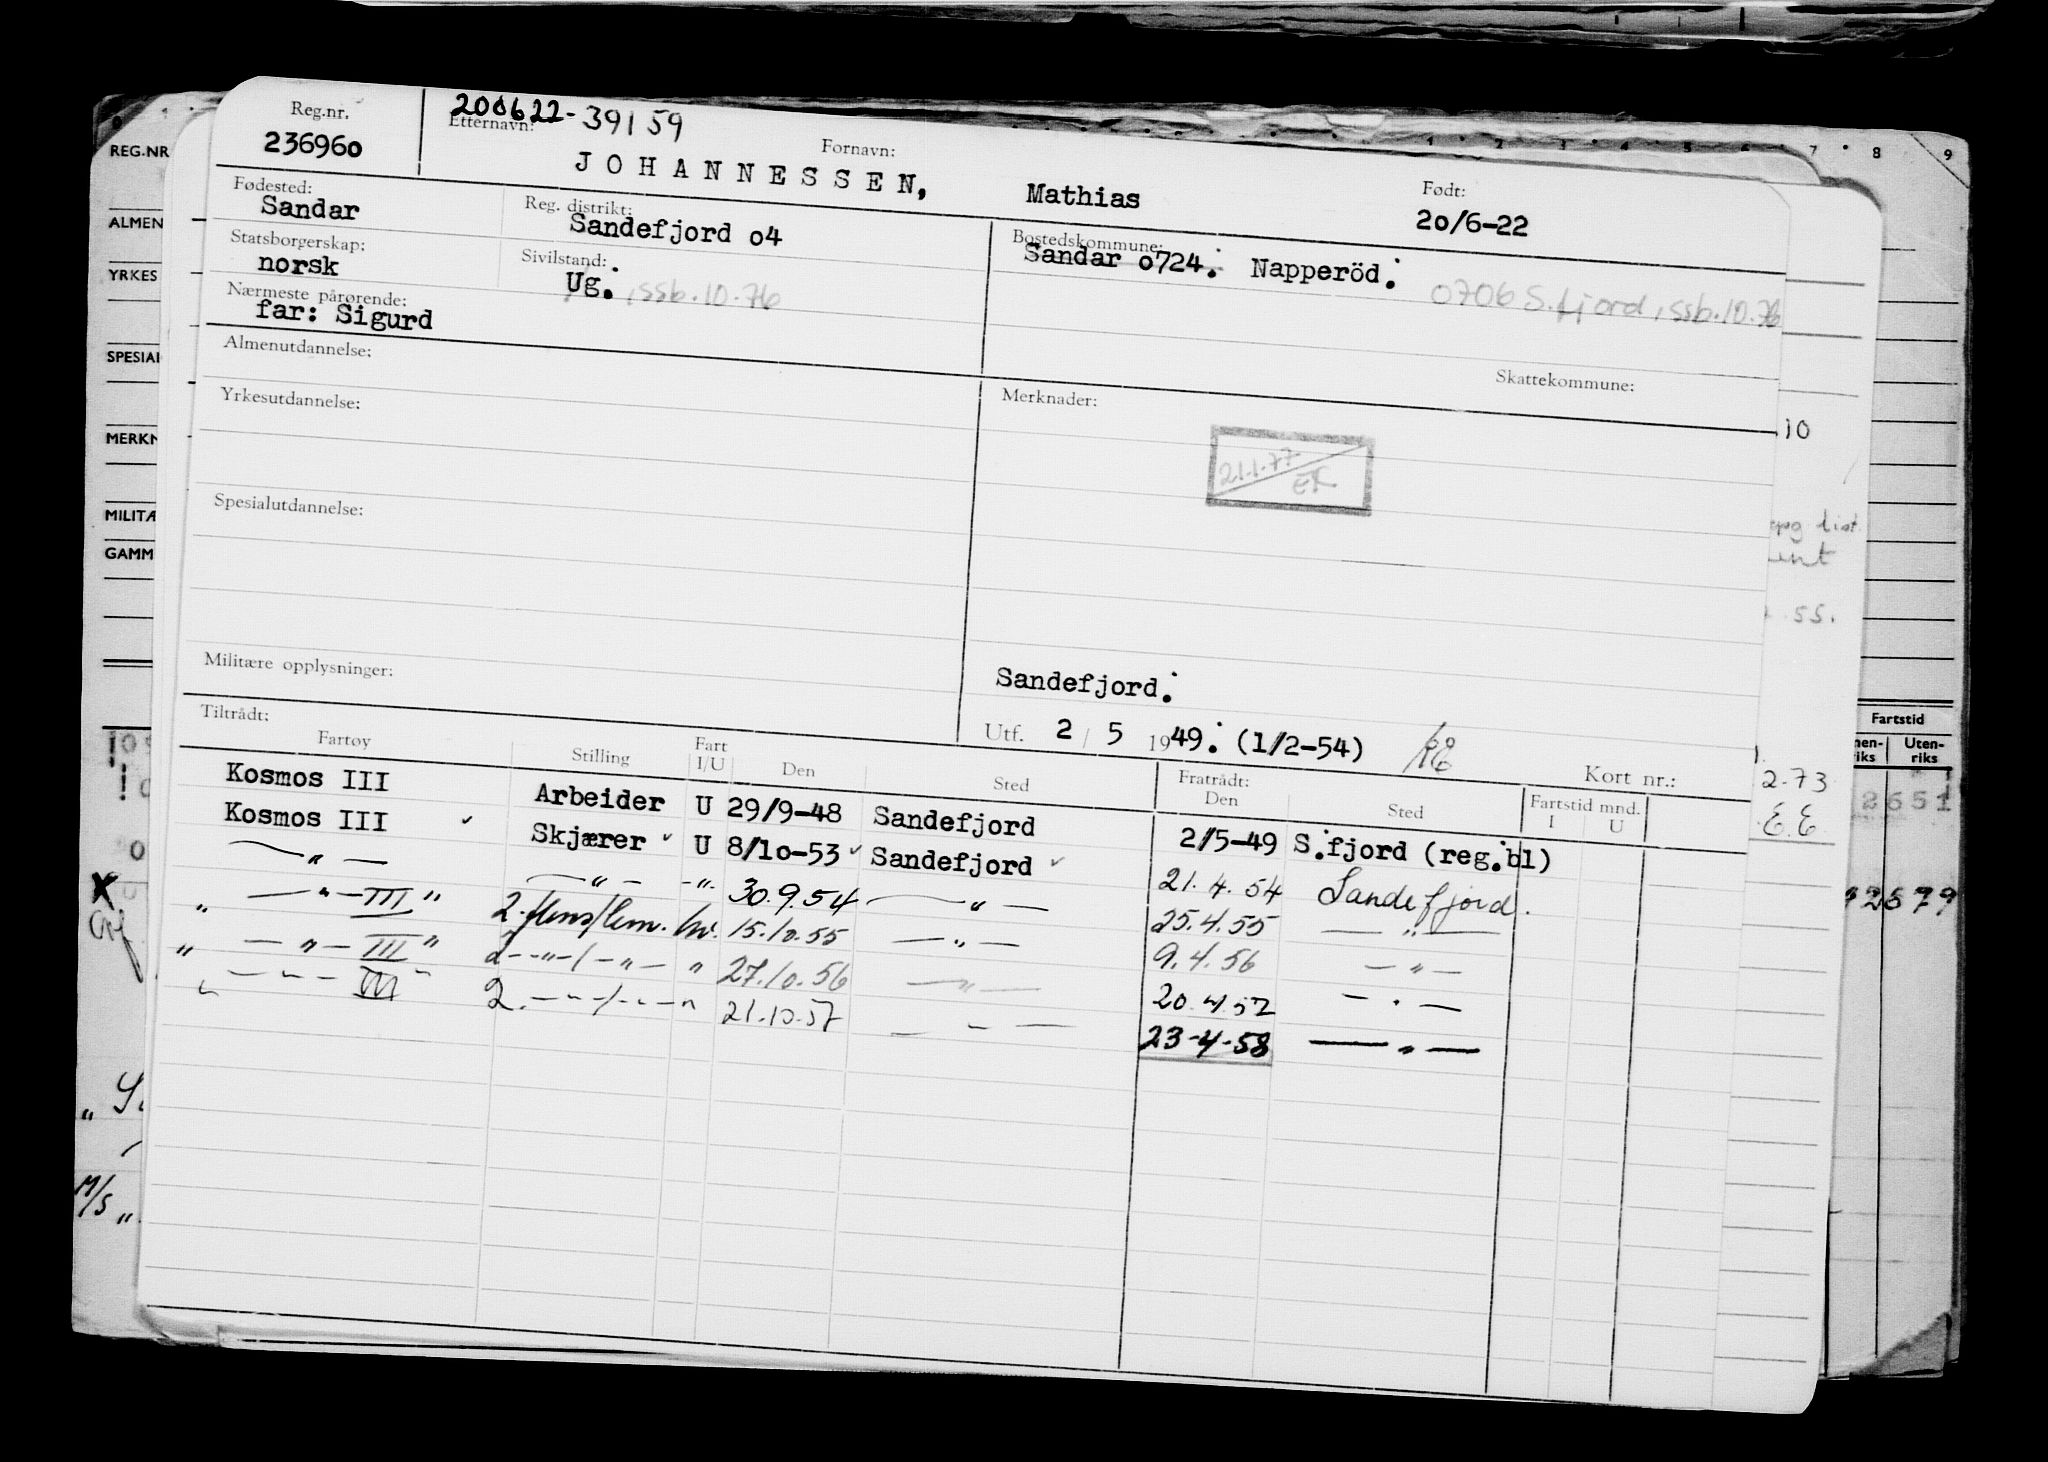 Reg.nr.
236960
200622-39159
Etternavn:
JOHANNESSEN,
Fornavn:
Mathias
Født:
20/6-22
Fødested:
Sandar
Reg. distrikt:
Sandefjord o4
Bostedskommune:
Sandar o724. Napperöd.
0706 S.fjord, ssb.10.76
Statsborgerskap:
norsk
Sivilstand:
Ug. , ssb.10.76
Nærmeste pårørende:
far: Sigurd
Skattekommune:
Almenutdannelse:
Yrkesutdannelse:
Merknader:
21.1.77
EK
Spesialutdannelse:
Militære opplysninger:
Sandefjord.
Utf. 2 / 5 1949. (1/2-54)
Kort nr.:
Tiltrådt:
Fartøy Stilling Fart I/U Den Sted Fratrådt: Den Sted Fartstid mnd. I U
Kosmos III Arbeider U 29/9-48 Sandefjord 2/5-49 S.fjord (reg.bl)
Kosmos III Skjærer U 8/10-53 Sandefjord 21.4.54 Sandefjord.
— " — — " — - ". 30.9.54 — " — 25.4.55 — " —
" — " — III " 15.10.55 — " — 9.4.56 — " —
" — " — III " 2 - " - / - " - " 27.10.56 — " — 20.4.57 — " —
" — " — III " 2. - " - / - " - " 21.10.57 — " — 23-4-58 — " —
REG.NR
ALMEN
YRKES
SPESIAL
MERKN
MILITÆ
GAMM
7 8 9
10
55.
Fartstid
Uten-
riks
2.73
E.E.
2651
X
M/S "